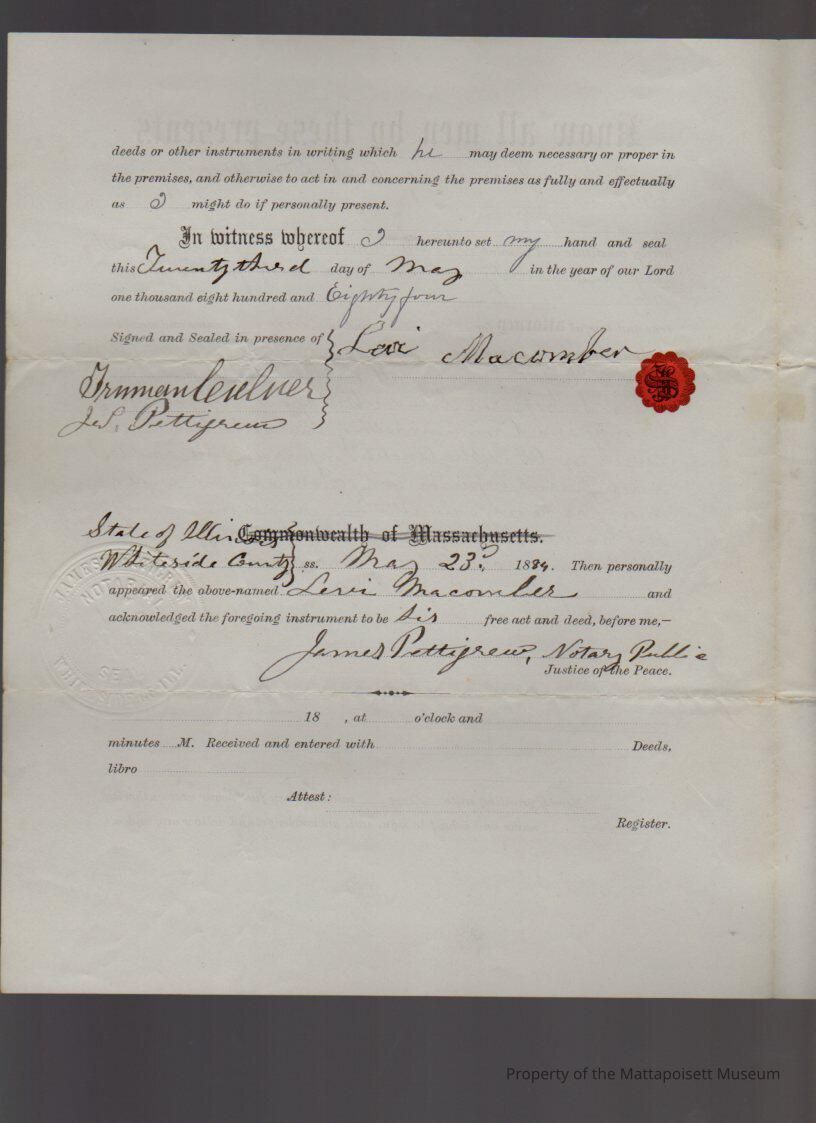 deeds or other instruments in writing which he may deem necessary or proper in
the premises, and otherwise to act in and concerning the premises as fully and effectually
as I might do if personally present.
In witness whereof I hereunto set my hand and seal
this Twenty third day of May in the year of our Lord
one thousand eight hundred and Eighty four
Signed and Sealed in presence of
Levi Macomber
Truman Culver
Jas. Pettigrew
State of Illinois Commonwealth of Massachusetts.
Whiteside County ss. May 23d. 1884. Then personally
appeared the above-named Levi Macomber and
acknowledged the foregoing instrument to be his free act and deed, before me,—
James Pettigrew, Notary Public
Justice of the Peace.
18 , at o'clock and
minutes M. Received and entered with Deeds,
libro
Attest:
Register.
NOTARIAL
SEAL
Property of the Mattapoisett Museum